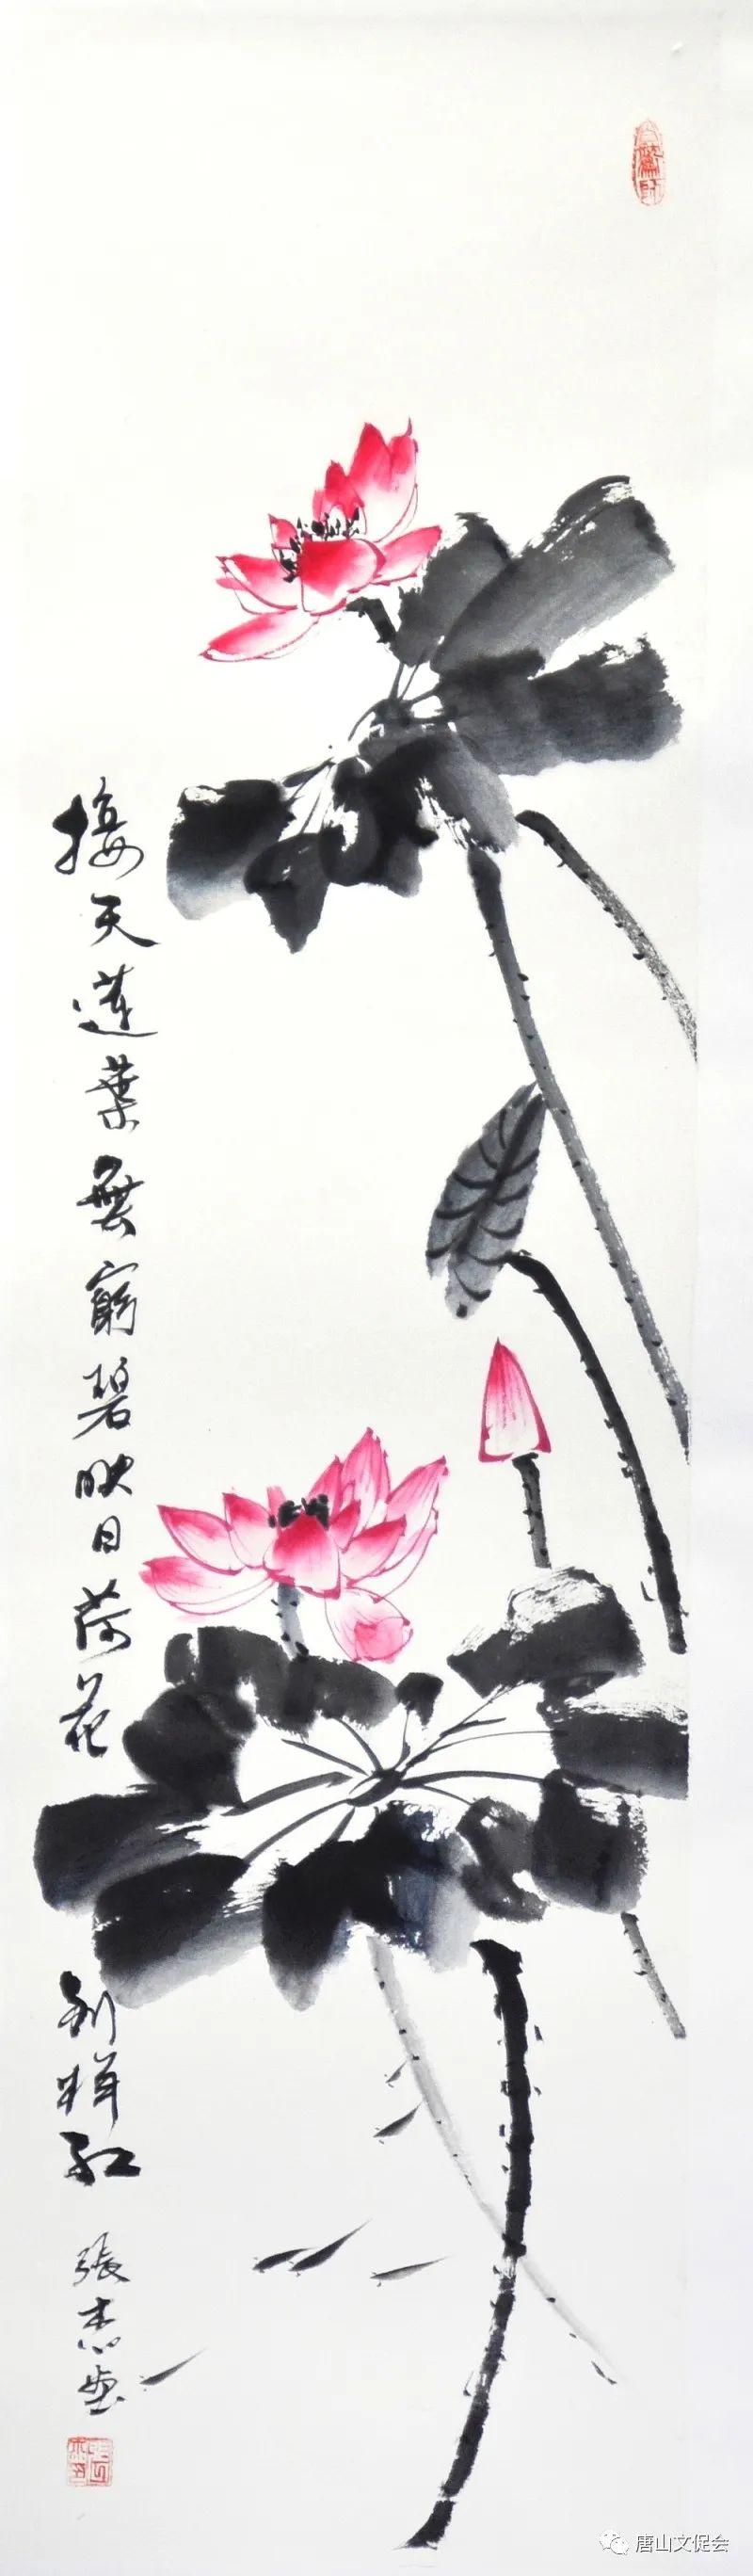 接天蓮葉無窮碧映日荷花
别样红
張杰画
唐山文促会